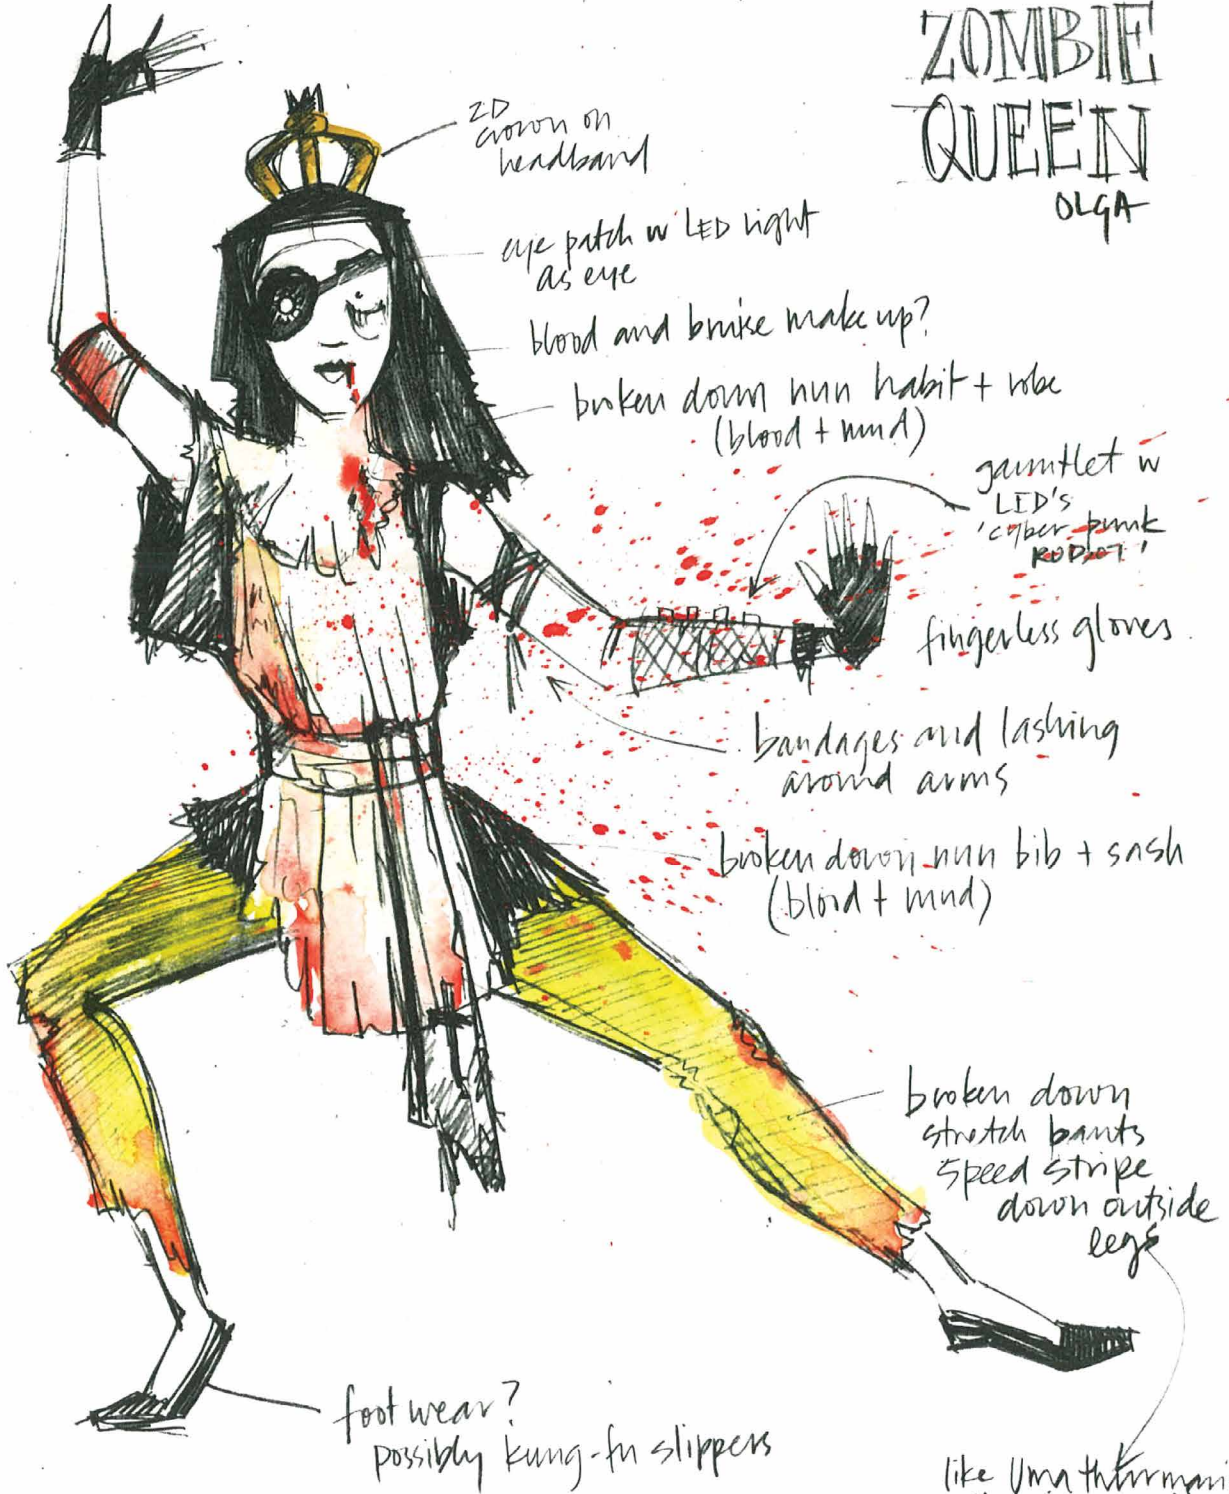 ZOMBIE
QUEEN
OLGA
2D
crown on
headband
eye patch w LED light
as eye
blood and bruise make up?
broken down nun habit + robe
(blood + mud)
gauntlet w
LED's
'cyber punk
ROBOT'
fingerless gloves
bandages and lashing
around arms
broken down nun bib + sash
(blood + mud)
broken down
stretch pants
speed stripe
down outside
legs
footwear?
possibly kung-fu slippers
like Uma Thurman